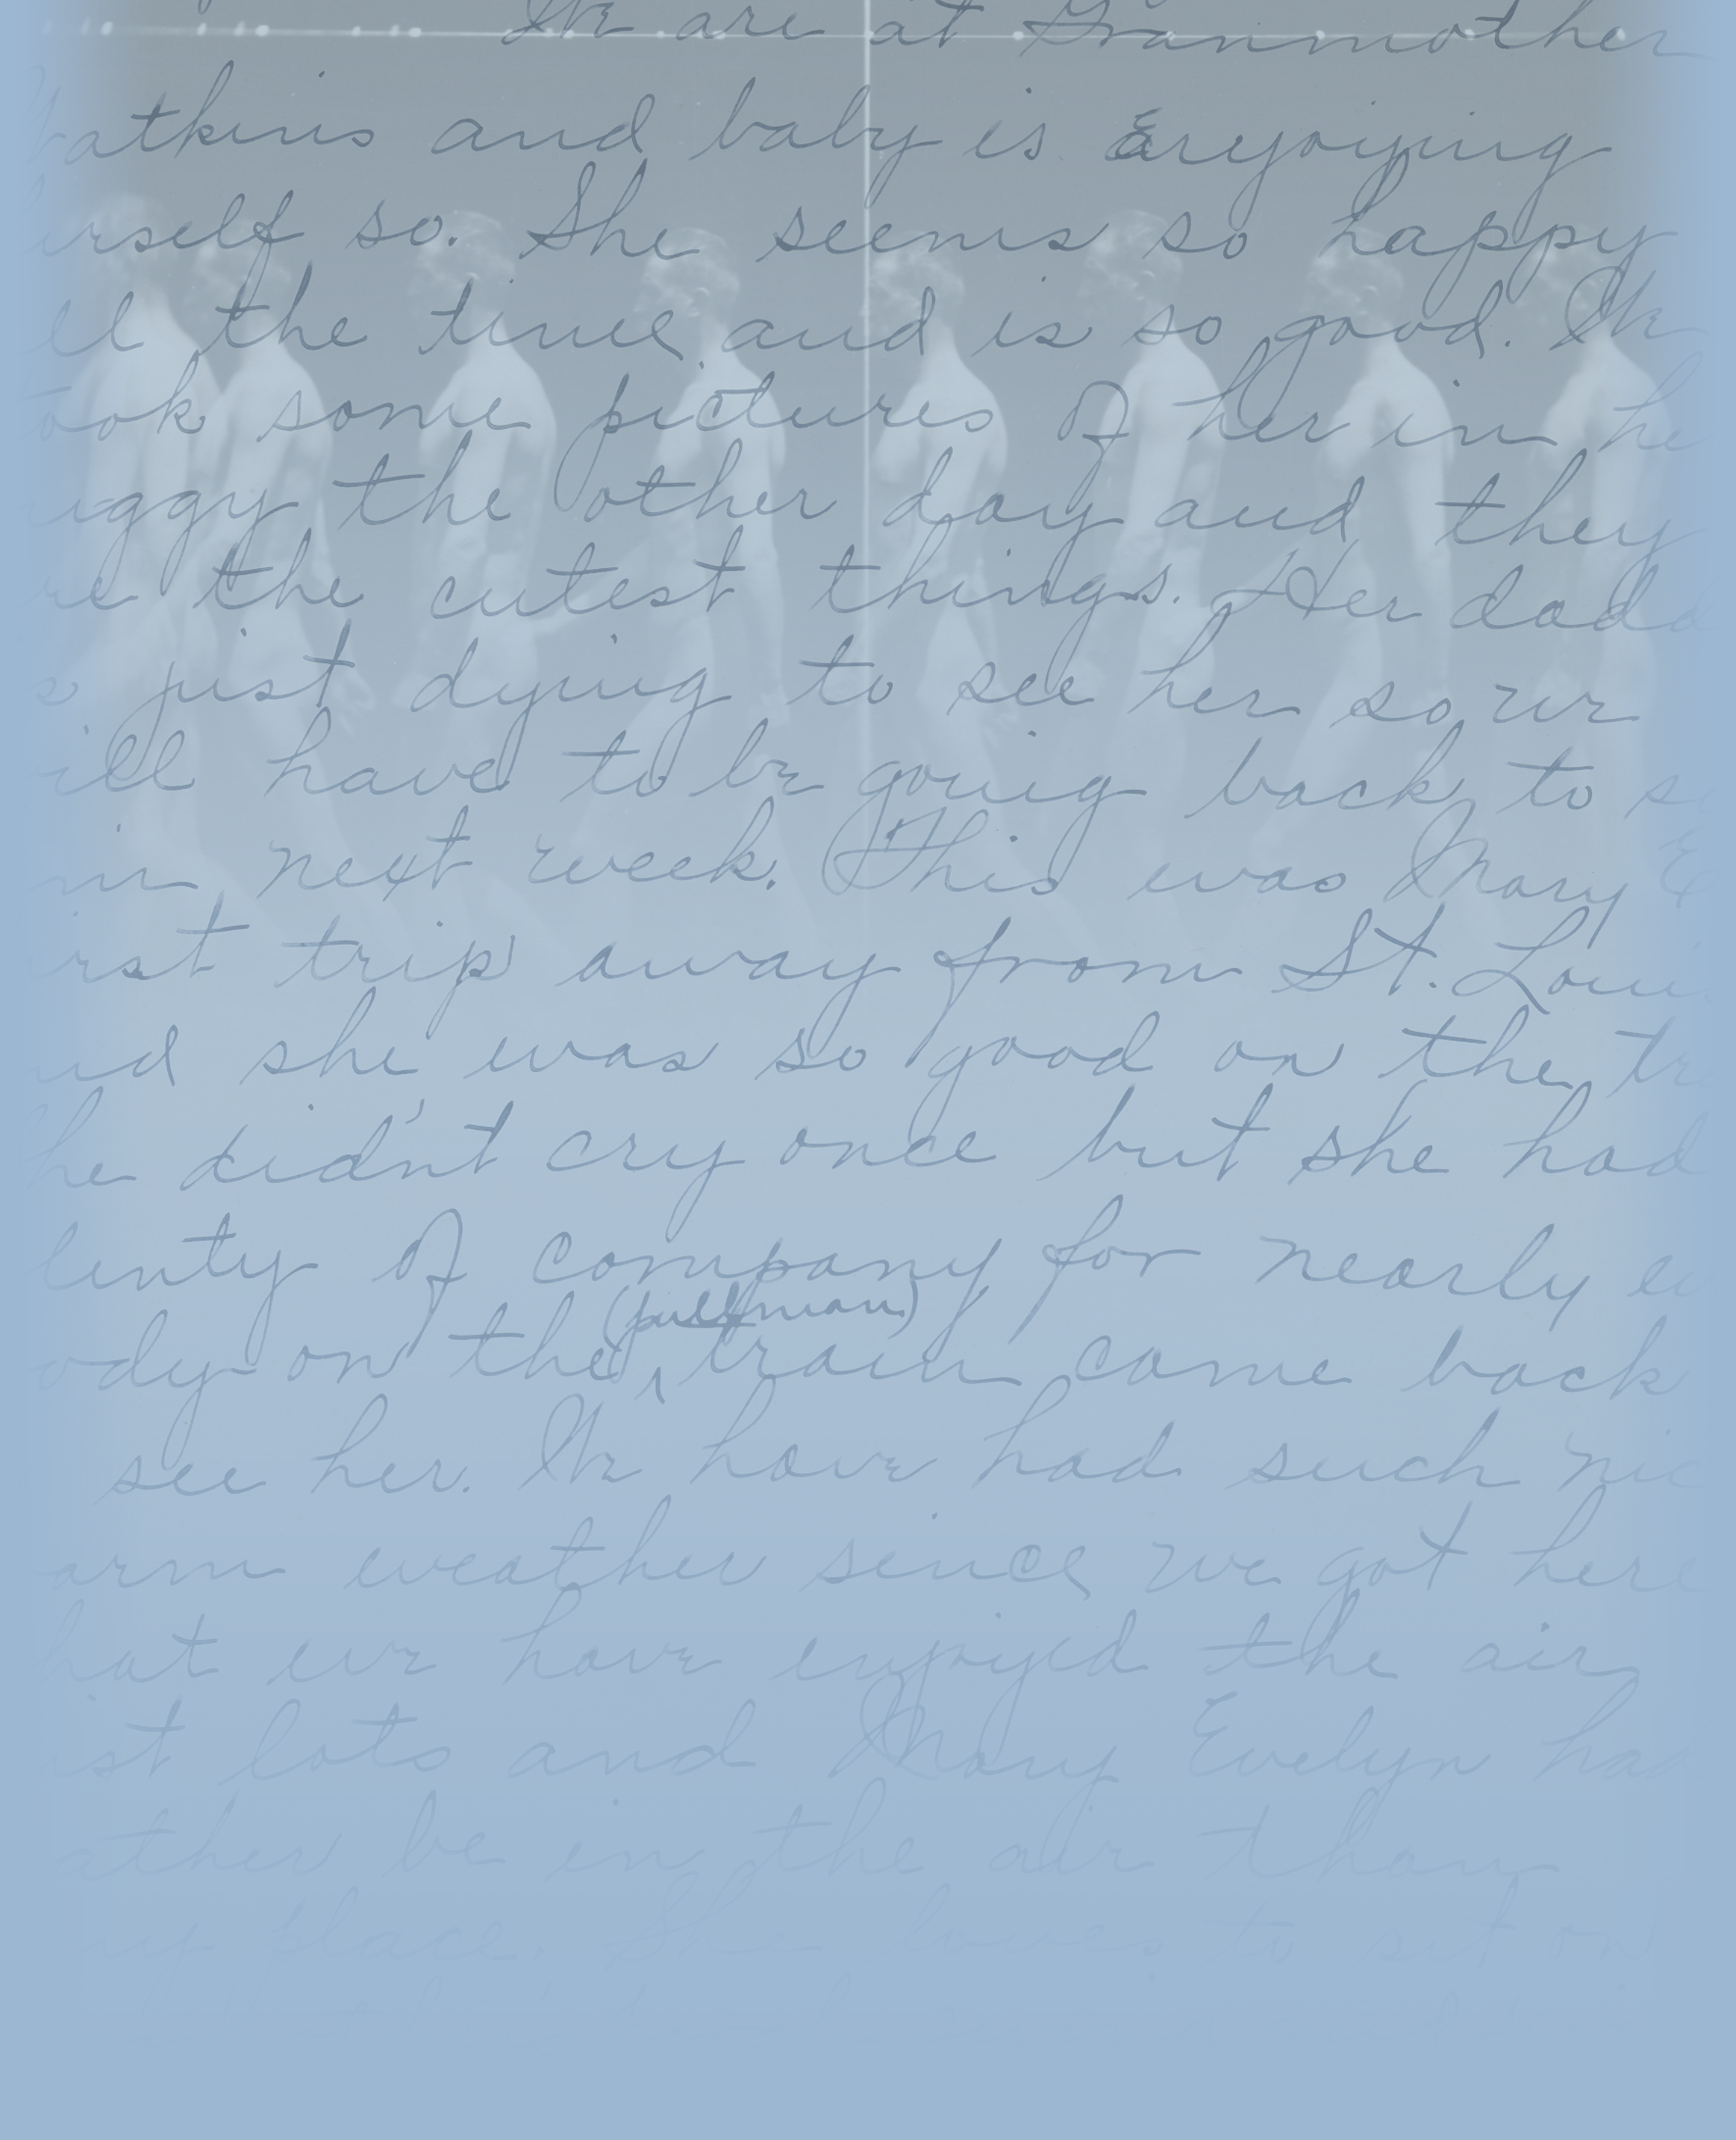 We are at Granmother
atkins and baby is enjoying
urself so. She seems so happy
ll the time, and is so good. We
ook some pictures of her in he
uggy the other day and they
re the cutest things. Her dadd
s just dying to see her so we
ill have to be going back to s
in next week. This was Mary E
irst trip away from St. Loui
nd she was so good on the tr
he didn't cry once but she had
lenty of company for nearly ev
(pullman)
ody on the train came back
see her. We have had such nic
arm weather since we got here
hat we have enjoyed the air
st lots and Mary Evelyn had
ather be in the air than
ny place. She loves to sit on